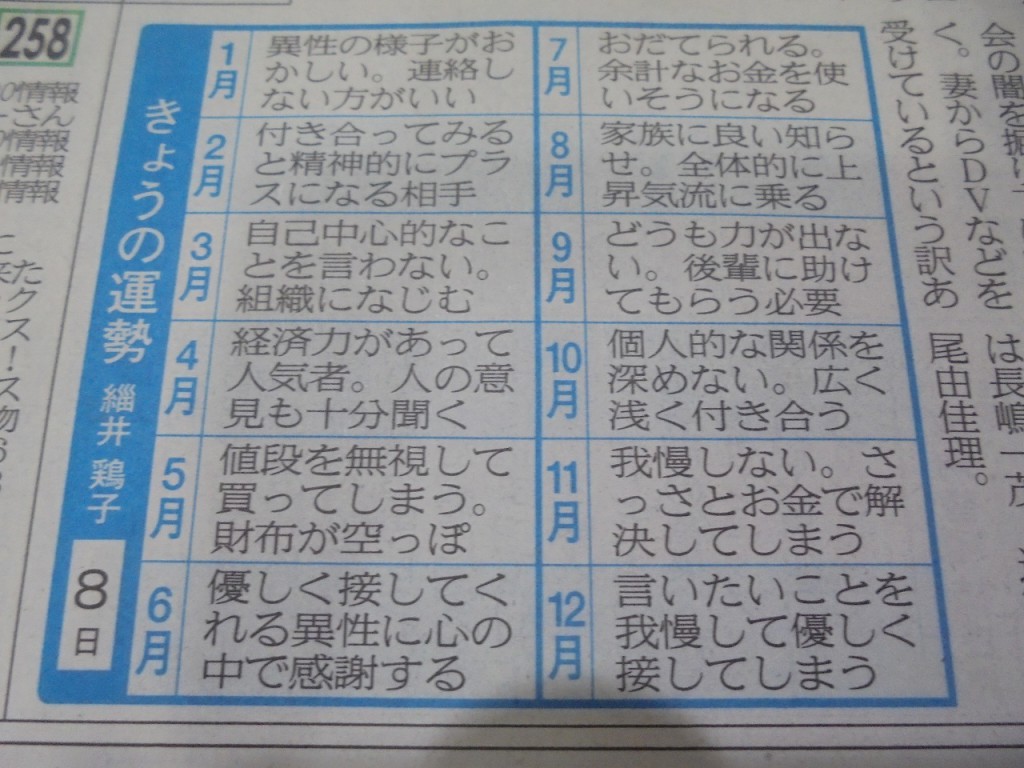 258
情報
さん
情報
情報
情報
きょうの運勢
緇井 鶏子
8日
1月
異性の様子がお
かしい。連絡し
ない方がいい
2月
付き合ってみる
と精神的にプラ
スになる相手
3月
自己中心的なこ
とを言わない。
組織になじむ
4月
経済力があって
人気者。人の意
見も十分聞く
5月
値段を無視して
買ってしまう。
財布が空っぽ
6月
優しく接してく
れる異性に心の
中で感謝する
7月
おだてられる。
余計なお金を使
いそうになる
8月
家族に良い知ら
せ。全体的に上
昇気流に乗る
9月
どうも力が出な
い。後輩に助け
てもらう必要
10月
個人的な関係を
深めない。広く
浅く付き合う
11月
我慢しない。さ
っさとお金で解
決してしまう
12月
言いたいことを
我慢して優しく
接してしまう
会の闇を
く。妻からDVなどを
受けているという訳あ
は長嶋一茂
尾由佳理。